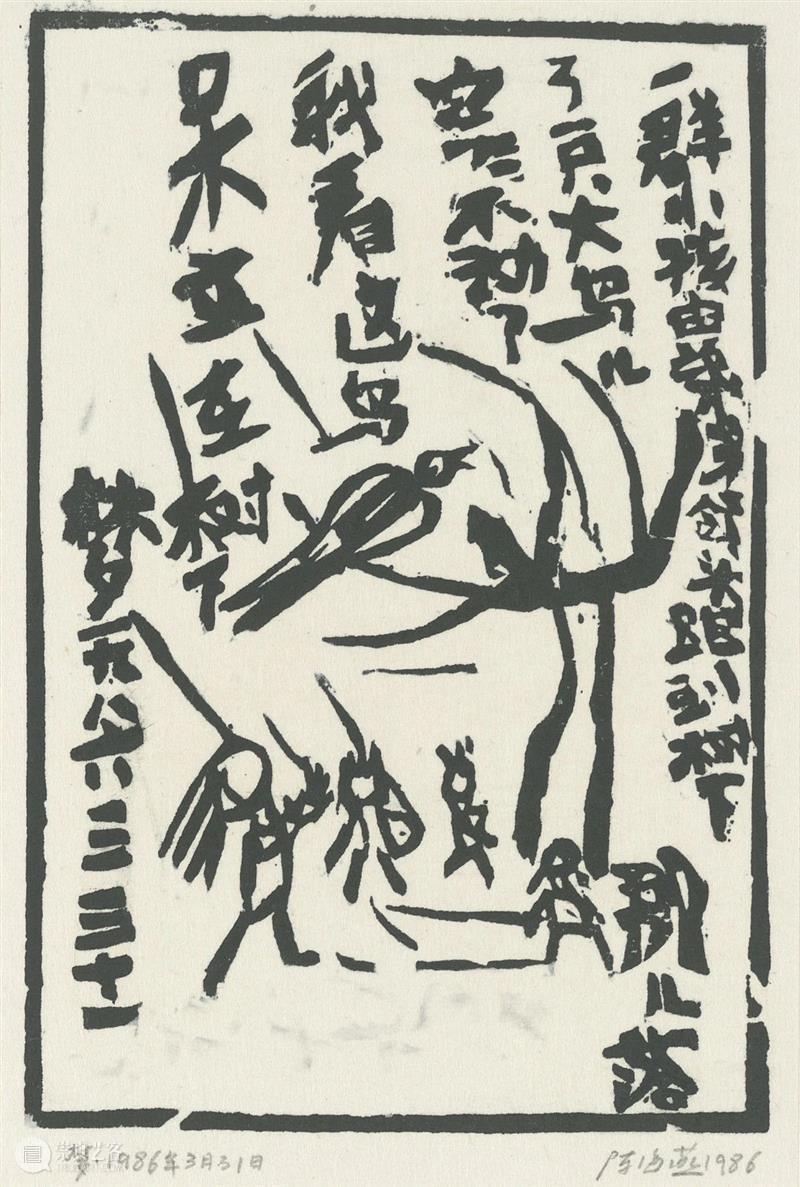 一群小孩由头跑到树下
刚儿落
了一只大鸟儿
不动了
我看这鸟
呆立在树下
梦一九八六三三十一
梦 1986年3月31日
陈海燕1986
崇真艺客